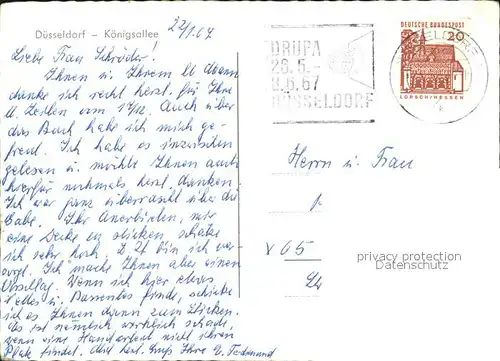 Düsseldorf – Königsallee
22/1.67
Liebe Frau Schröder!
Ihnen u. Ihrem
danke ich recht herzl. für Ihre
Zeilen vom Auch über
das Buch habe ich mich ge-
freut. Ich habe es inzwischen
gelesen u. möchte Ihnen auch
hierfür nochmals herzl. danken.
Ich war ganz überrascht über die
Gabe. Ihr Anerbieten, mir
eine Decke zu sticken schätze
ich sehr hoch. Z Zt bin ich ver-
sorgt. Ich mache Ihnen aber einen
Vorschlag. Wenn ich hier etwas
Nettes u. Passendes finde, schicke
ich es Ihnen dann zum Sticken.
Es ist nämlich wirklich schade,
wenn eine Handarbeit nicht ihren
Platz findet. Herzl. Gruß Ihre
DRUPA
26.5.-
9.6.67
DÜSSELDORF
DEUTSCHE BUNDESPOST
20
LORSCH/HESSEN
Herrn u. Frau
privacy protection
Datenschutz